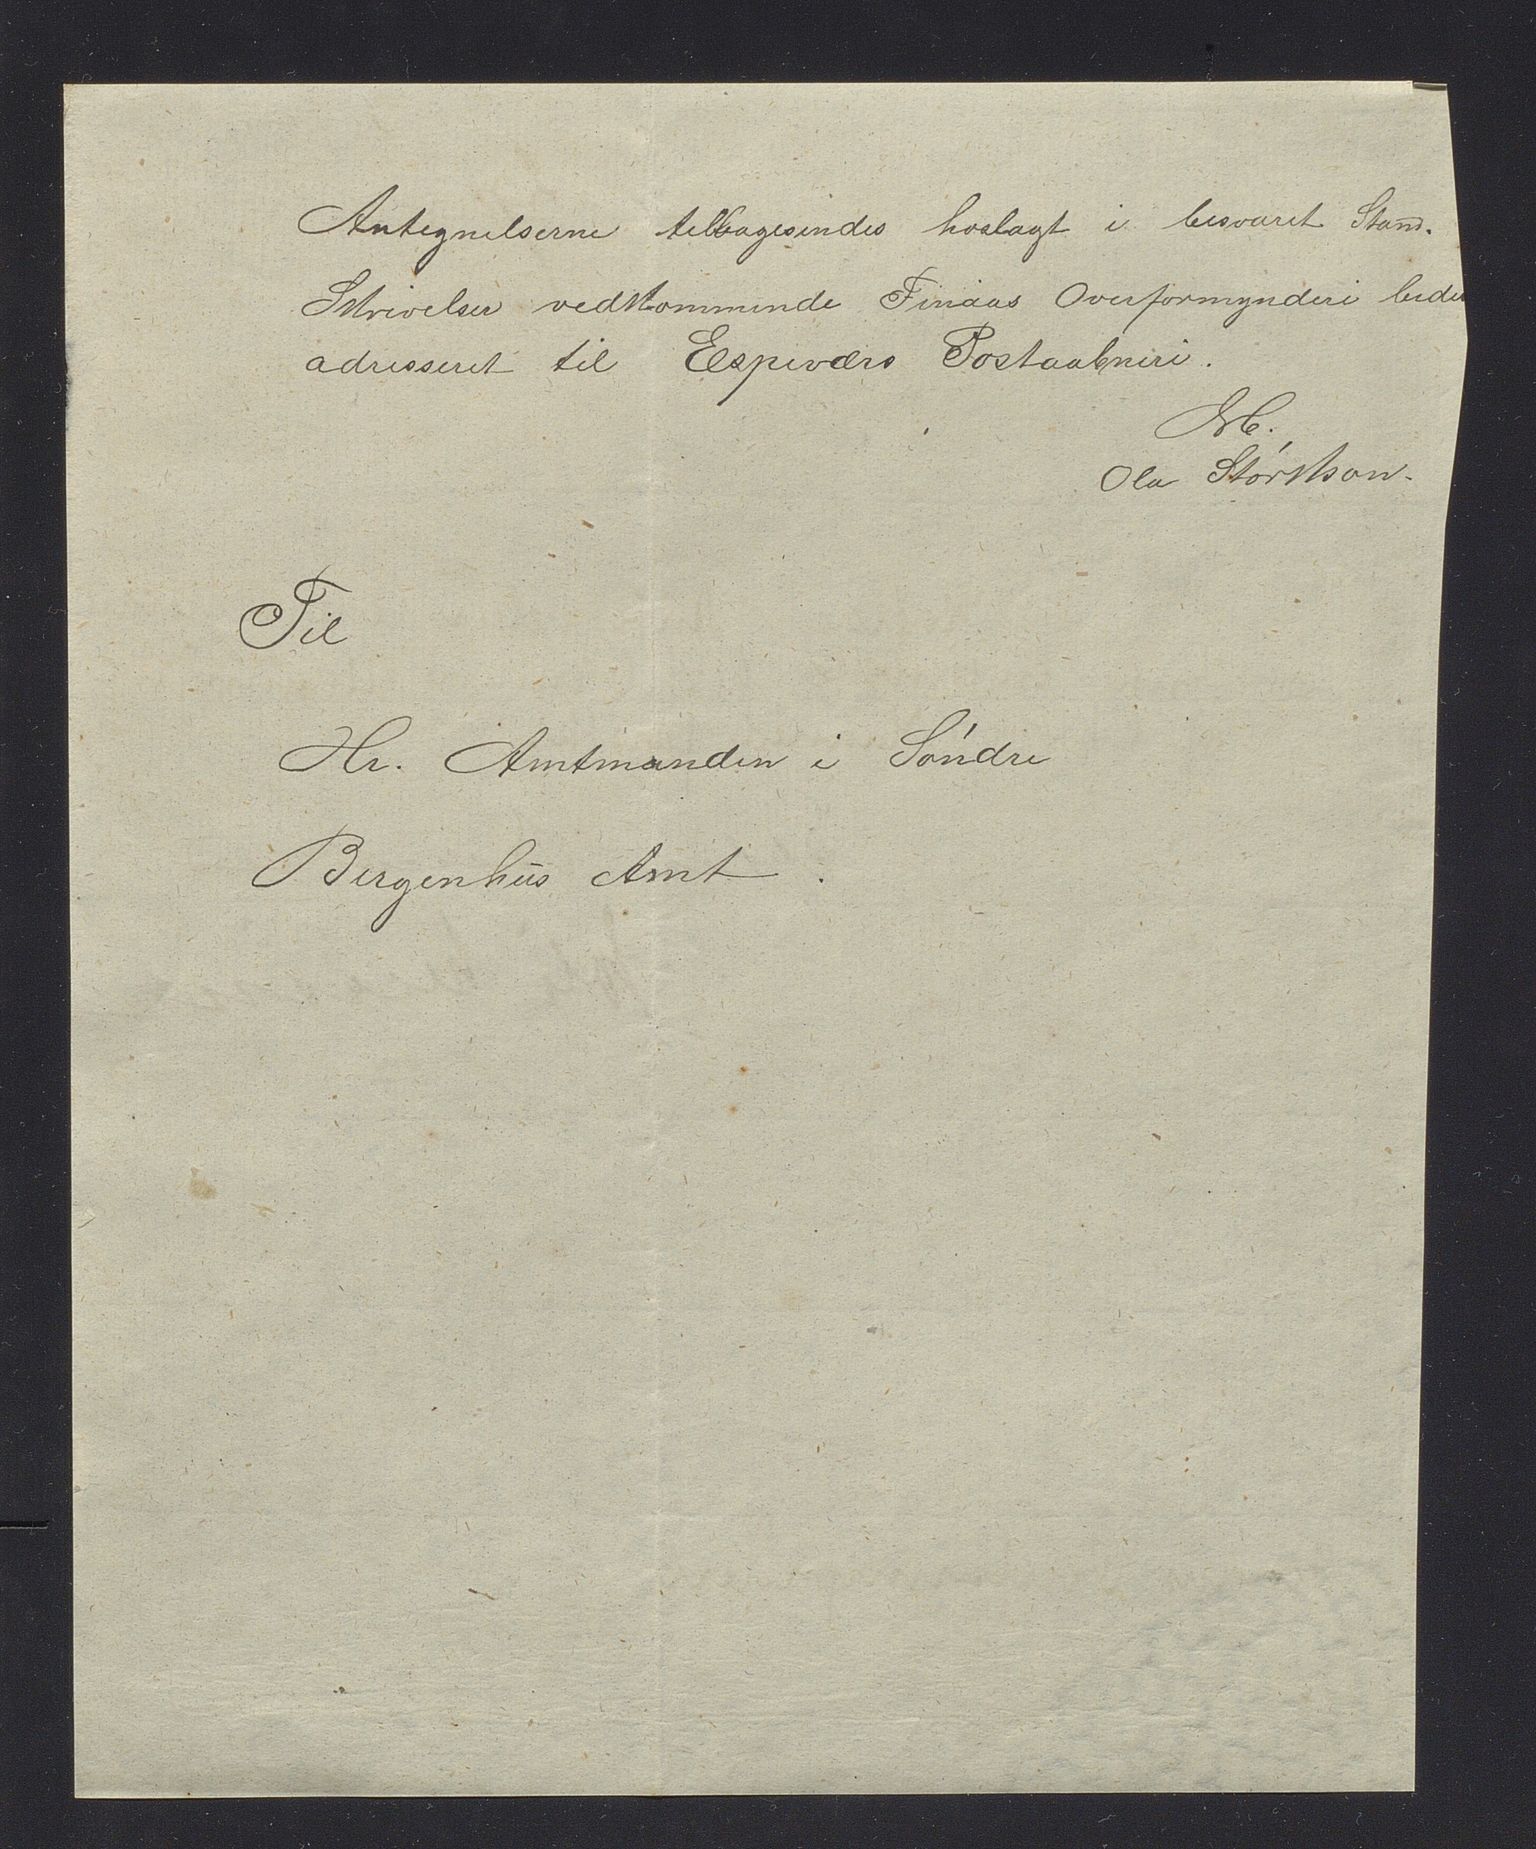 Antegnelserne tilbagesendes hoslagt i besvaret Stand.
Skrivelser vedkommende Finaas Overformynderi bedes
adresseret til Espeværs Postaabneri.
Ærb.
Ola Størkson.
Til
Hr. Amtmanden i Søndre
Bergenhus Amt.